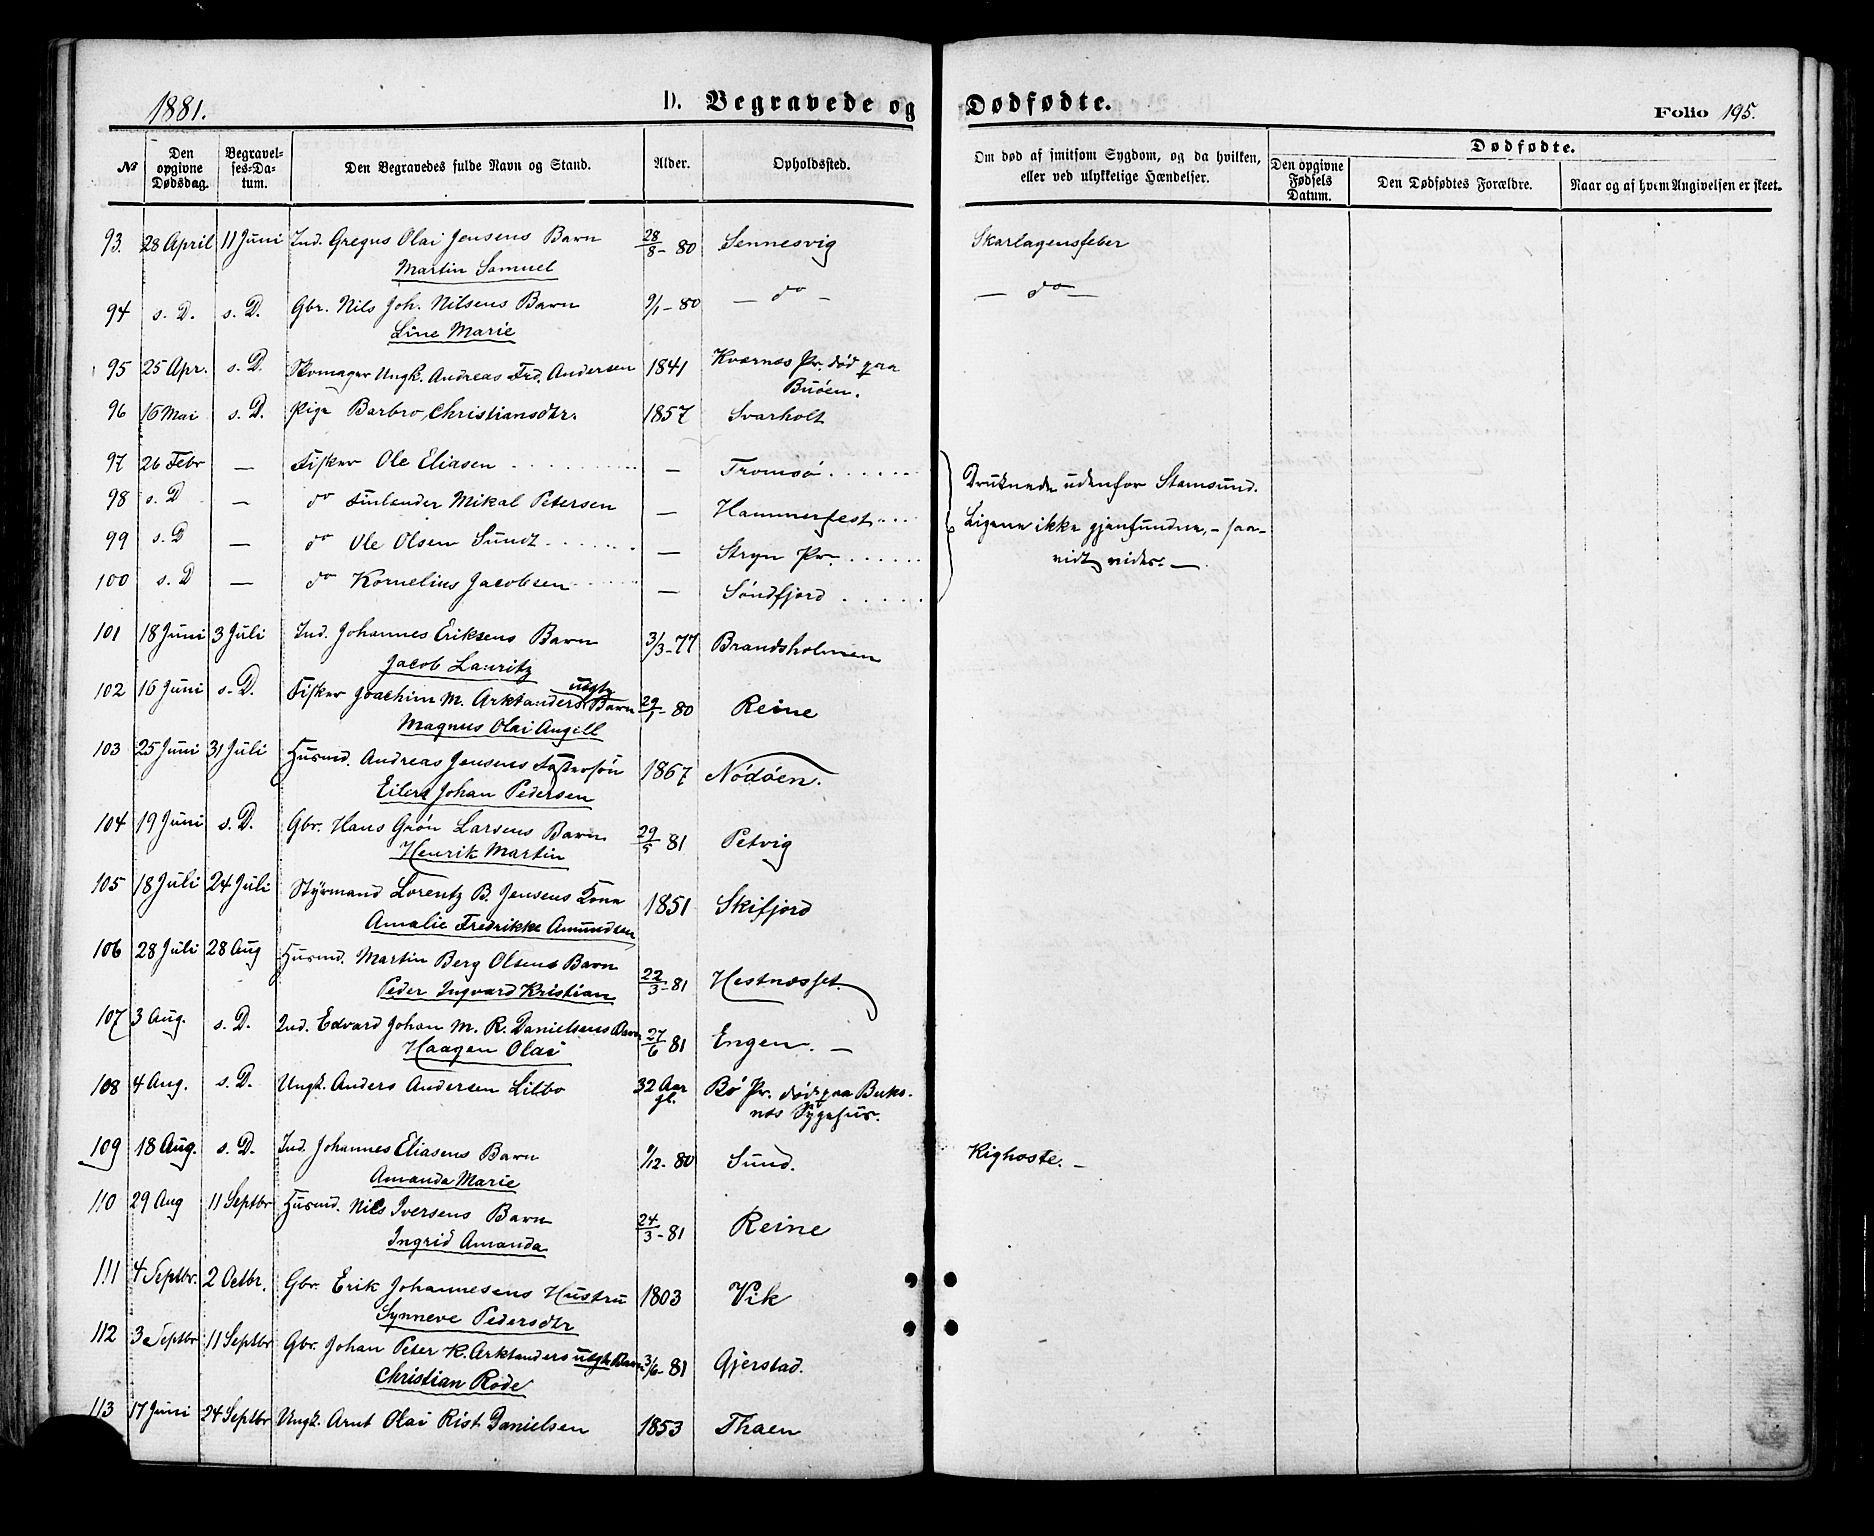 1881.
D. Begravede og Dødfødte.
Folio 195.
№ | Den opgivne Dødsdag. | Begravelses-Datum. | Den Begravedes fulde Navn og Stand. | Alder. | Opholdssted. | Om død af smitsom Sygdom, og da hvilken, eller ved ulykkelige Hændelser. | Dødfødte. | Den opgivne Fødsels Datum. | Den Dødfødtes Forældre. | Naar og af hvem Angivelsen er skeet.
93. 28 April 11 Juni Ind. Gregus Olai Jensens Barn 28/8-80 Sennesvig Skarlagensfeber
Martin Samuel
94 s. D. s. D. Gbr. Nils Joh. Nilsens Barn 9/1-80 — do — — do —
Line Marie
95 25 Apr. s. D. Skomager Ungk. Andreas Frd. Andersen 1841 Kværnæs Pr. død paa
Buøen.
96 16 Mai s. D. Pige Barbro Christiansdtr. 1857 Svarholt
97 26 Febr — Fisker Ole Eliasen — Tromsø
98 s. D — do Finlænder Mikal Petersen — Hammerfest
99 s. D — do Ole Olsen Sundt — Stryn Pr.
100 s. D — do Kornelius Jacobsen — Søndfjord
Druknede udenfor Stamsund.
Ligene ikke gjenfundne, - saa-
vidt vides. —
101 18 Juni 3 Juli Ind. Johannes Eriksens Barn 3/3-77 Brandsholmen
Jacob Lauritz
102 16 Juni s. D. Fisker Joachim M. Arktanders uægte Barn 29/1-80 Reine
Magnus Olai Angell
103 25 Juni 31 Juli Husmd. Andreas Jensens Fostersøn 1867 Nødøen.
Eilert Johan Pedersen
104 19 Juni s. D. Gbr. Hans Grøn Larsens Barn 29/5 81 Petvig
Henrik Martin
105 18 Juli 24 Juli Styrmand Lorentz B. Jensens Kone 1851 Skifjord
Amalie Fredrikke Amundsen
106 28 Juli 28 Aug Husmd. Martin Berg Olsens Barn 22/3-81 Hestnæsset.
Peder Ingvard Kristian
107 3 Aug. s. D. Ind. Edvard Johan M. R. Danielsens Barn 27/6 81 Engen. —
Haagen Olai
108 4 Aug. s. D. Ungk. Anders Andersen Lilbo 32 Aar gl. Bø Pr. død paa Buks-
næs Sygehus.
109 18 Aug. s. D. Ind. Johannes Eliasens Barn 9/12-80 Sund. Kighoste. —
Amanda Marie
110 29 Aug 11 Septbr Husmd. Nils Iversens Barn 24/3-81 Reine
Ingrid Amanda
111 4 Septbr. 2 Octbr. Gbr. Erik Johannesens Hustru 1803 Vik
Synneve Pedersdtr
112 3 Septbr 11 Septbr Gbr. Johan Peter K. Arktanders uægte Barn 3/6-81 Gjerstad.
Christian Rode
113 17 Juni 24 Septbr Ungk. Arnt Olai Rist Danielsen 1853 Thaen